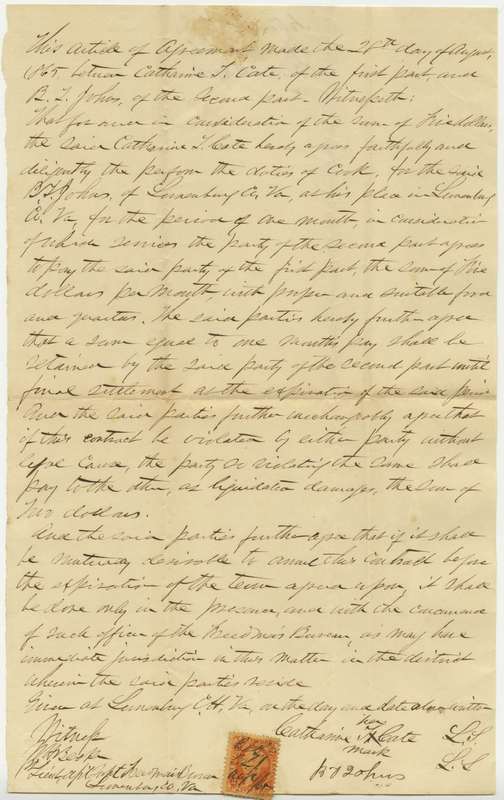 This article of Agreement, made the 28th day of August,
1865, between Catharine T. Cate, of the first part, and
B. T. Johns, of the second part. Witnesseth:
That for and in consideration of the sum of Five dollars
the said Catharine T. Cate hereby agrees faithfully and
diligently the perform the duties of Cook, for the said
B. T. Johns, of Lunenburg Co, Va, at his place in Lunenburg
Co. Va, for the period of one month, in consideration
of which services the party of the second part agrees
to pay the said party of the first part, the sum of Five
dollars per month with proper and suitable food
and quarters. The said parties hereby further agree
that a sum equal to one months pay shall be
retained by the said party of the second part until
final settlement at the expiration of the said period
And the said parties further interchangeably agree that
if this contract be violated by either party without
legal cause, the party so violating the same shall
pay to the other, as liquidated damages, the sum of
Two dollars.
And the said parties further agree that if it shall
be mutually desirable to annul this Contract before
the expiration of the term agreed upon, it shall
be done only in the presence, and with the concurrence
of such officer of the Freedmen's Bureau, as may have
immediate jurisdiction in this matter in the district
wherein the said parties reside
Given at Lunenburg C.H. Va, on the day and date above written
Witness
her
Catharine T. X Cate L.S.
mark
B T Johns L.S.
Lieut & Asst Supt Freedmens Bureau
Lunenburg Co. Va